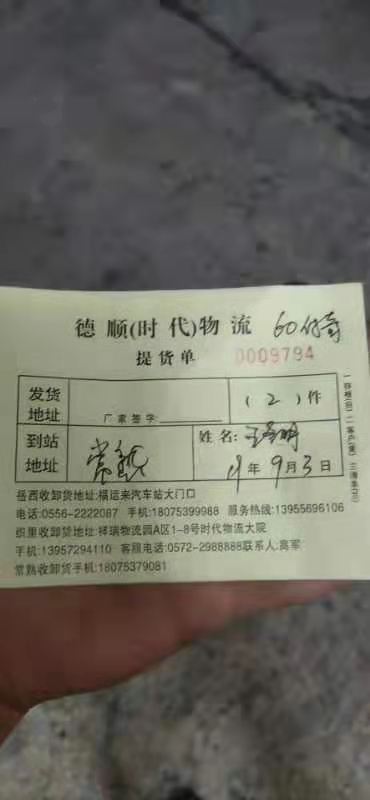 德顺(时代)物流 60
提货单 0009794
发货地址
厂家签字:
(2)件
到站地址
常熟
姓名: 王
年9月3日
岳西收卸货地址:横运来汽车站大门口
电话:0556-2222087 手机:18075399988 服务热线:13955696106
织里收卸货地址:祥瑞物流园A区1-8号时代物流大院
手机:13957294110 客服电话:0572-2988888联系人:高军
常熟收卸货手机:18075379081